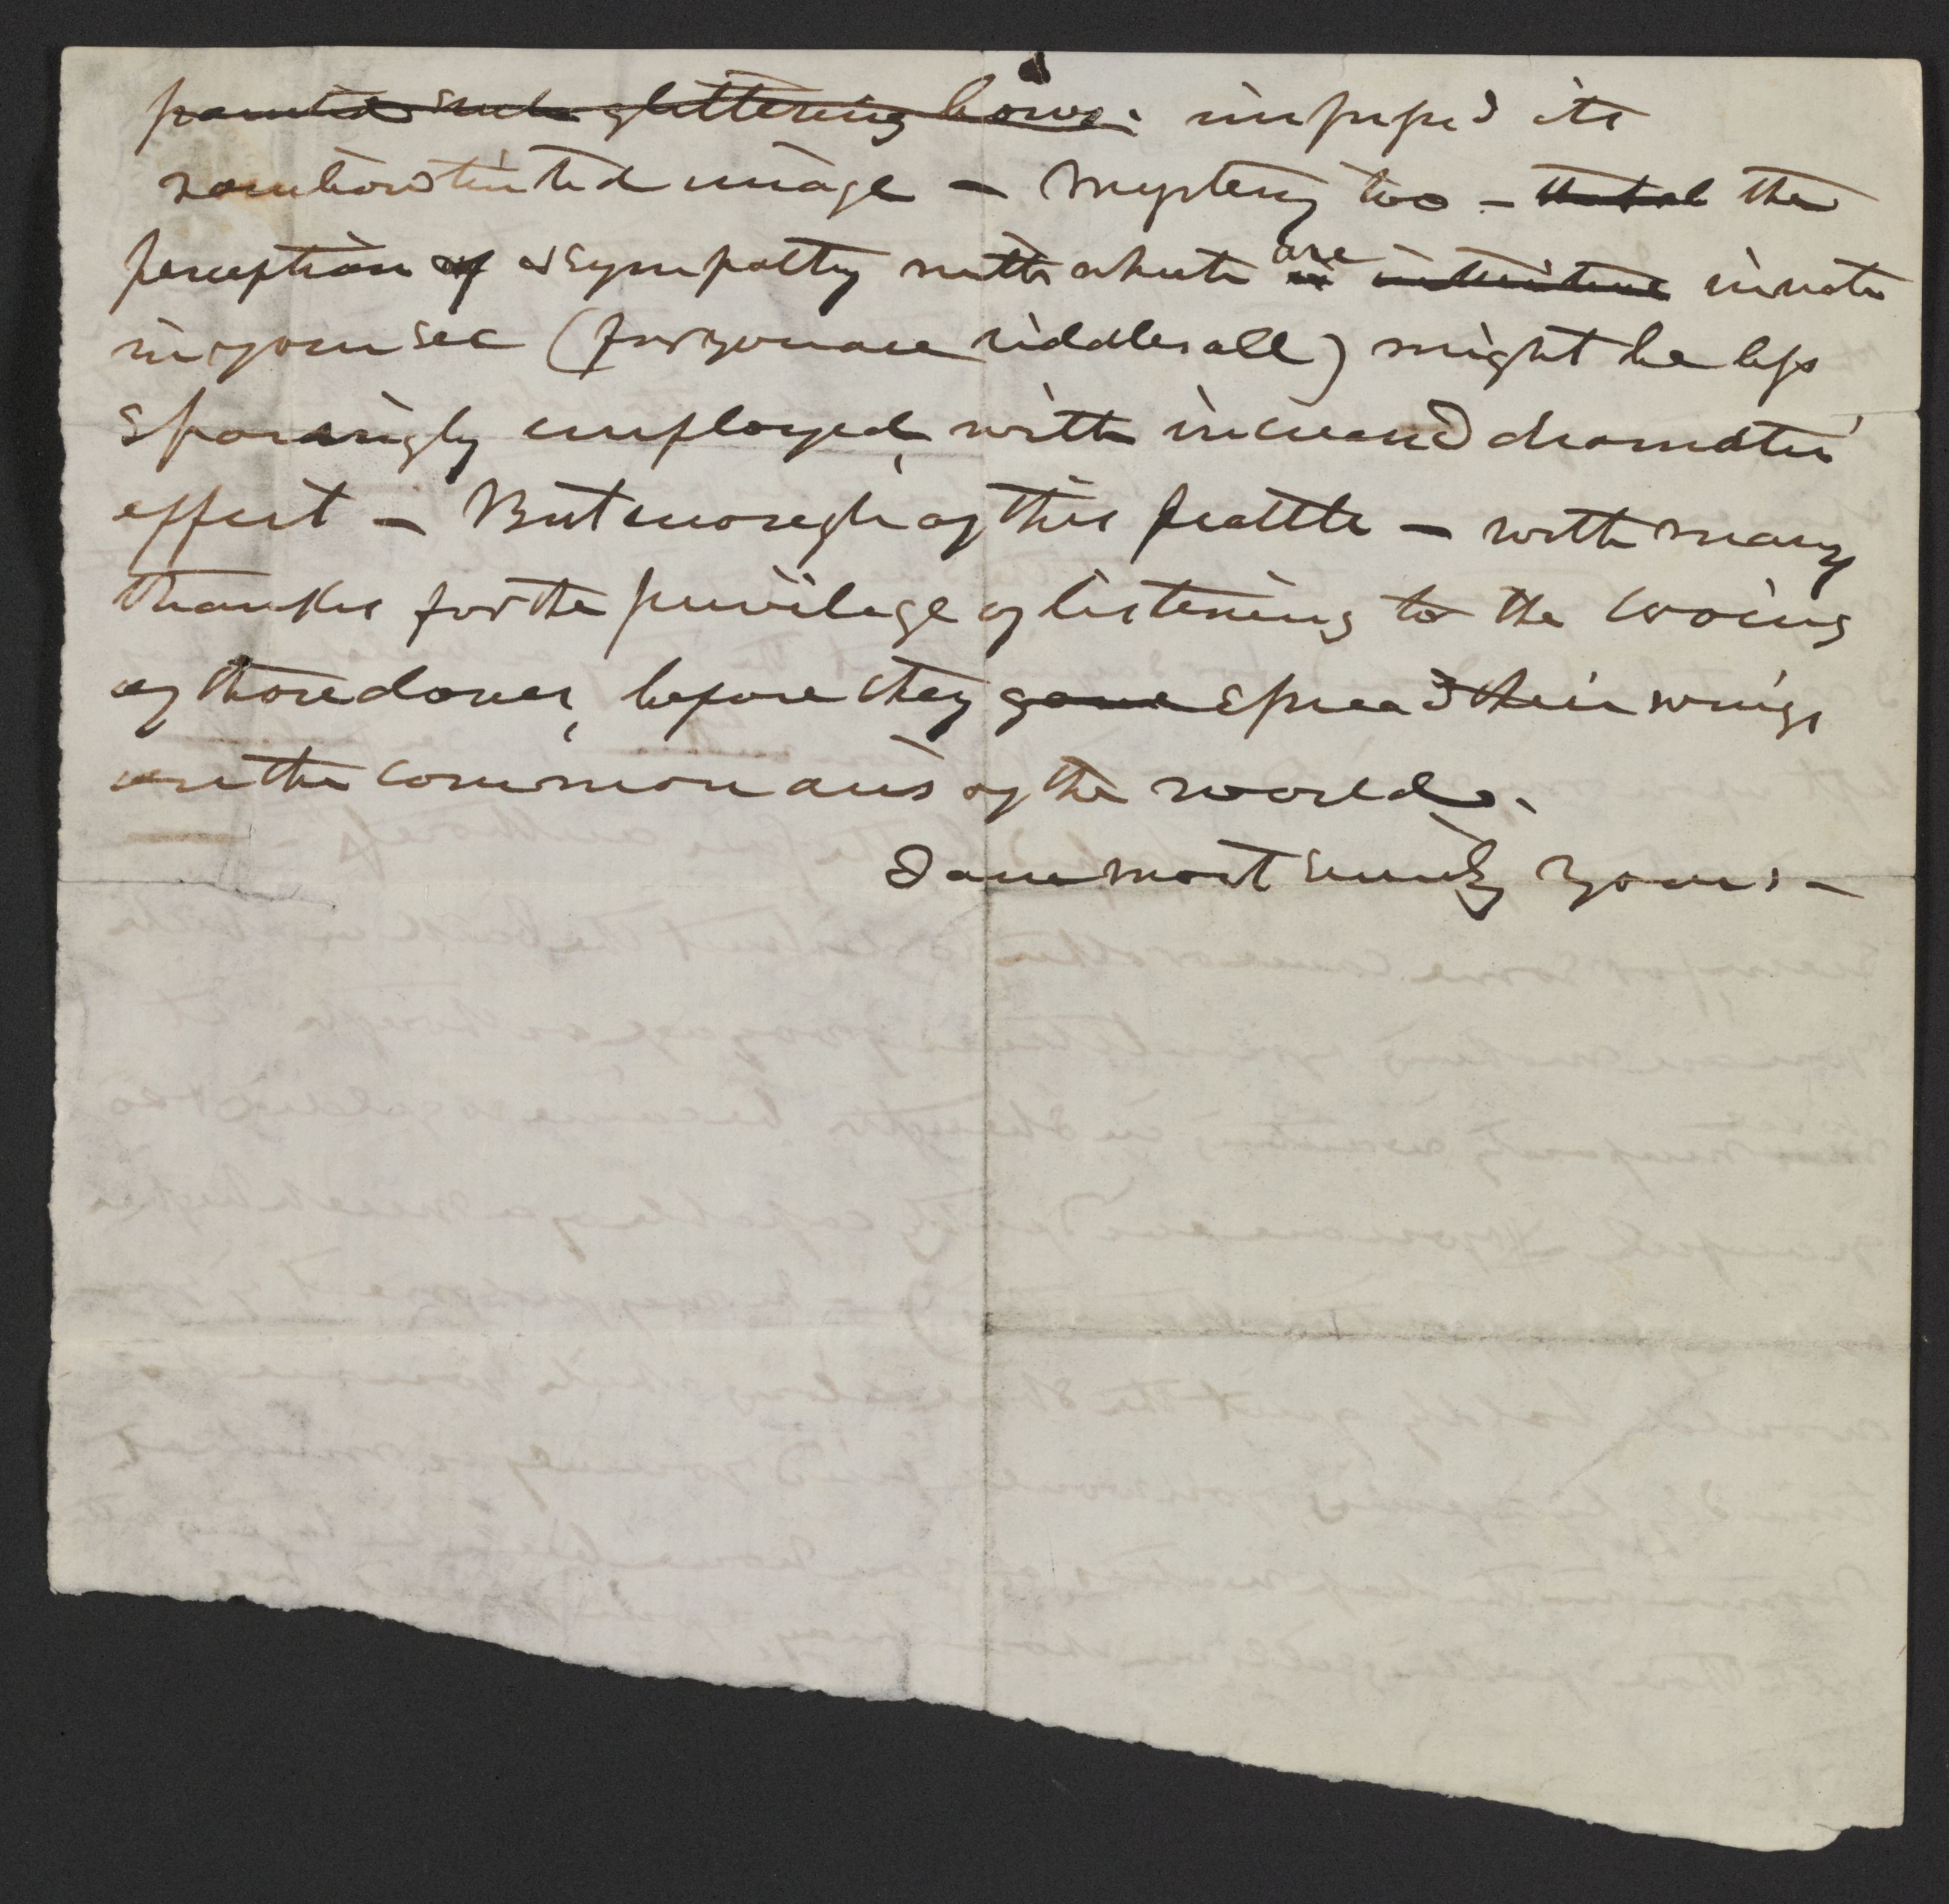 painted such glittering bows: impressed its
rainbow tinted image — Mystery too — the
perception of & sympathy with which are is intuitive innate
in your sex (for you are riddles all) might be less
sparingly employed, with increased dramatic
effect — But enough of this prattle — with many
thanks for the privilege of listening to the cooing
of those doves, before they gave spread their wings
on the common airs of the world.
I am most sincerely yours —